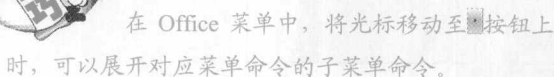 在 Office 菜单中，将光标移动至按钮上
时，可以展开对应菜单命令的子菜单命令。